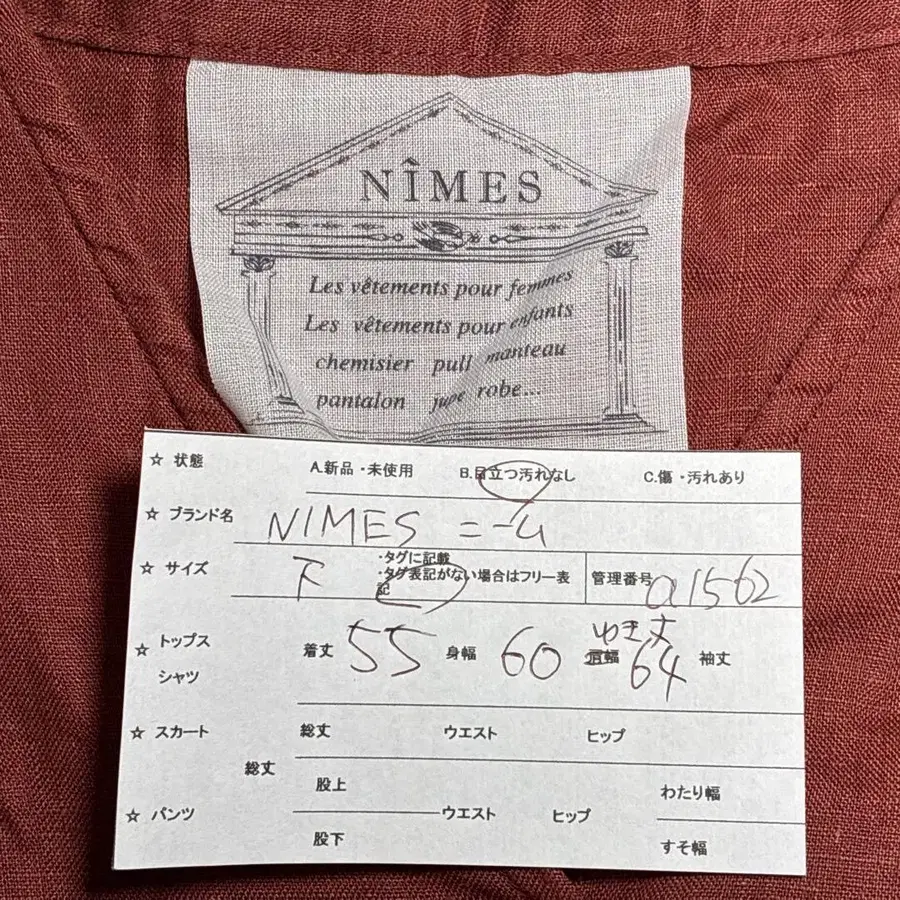 NÎMES
Les vêtements pour femmes
Les vêtements pour enfants
chemisier pull manteau
pantalon jupe robe...
☆ 状態 A.新品・未使用 B.目立つ汚れなし C.傷・汚れあり
☆ ブランド名 NIMES ニーム
☆ サイズ F ・タグに記載
・タグ表記がない場合はフリー表記
管理番号 a1562
☆ トップス シャツ 着丈 55 身幅 60 肩幅 ゆき丈 64 袖丈
☆ スカート 総丈 ウエスト ヒップ
☆ パンツ 総丈 股上 ウエスト ヒップ わたり幅
股下 すそ幅